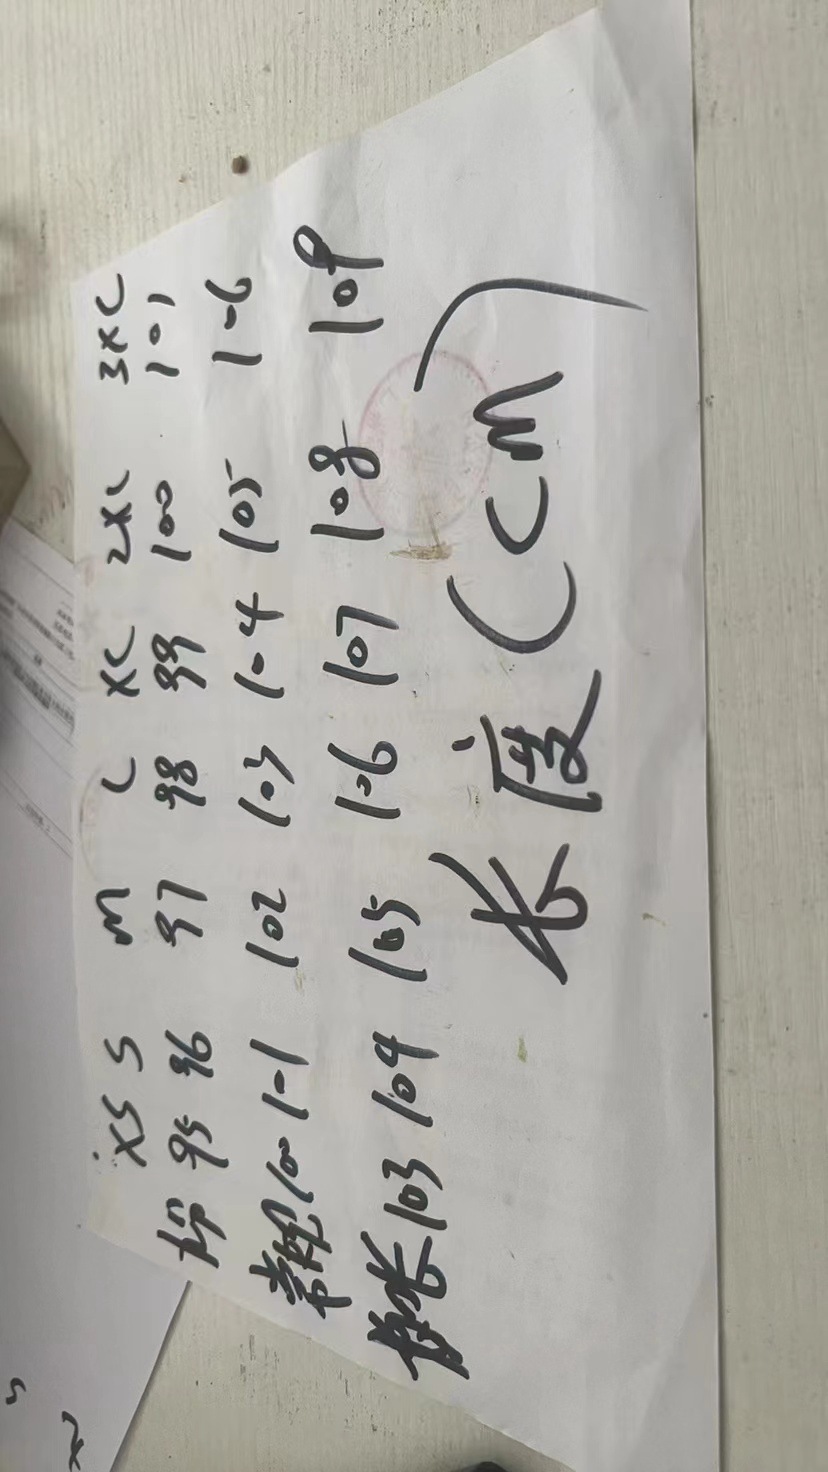 XS S M L XL 2XL 3XL
95 96 97 98 99 100 101
常规 100 101 102 103 104 105 106
加长 103 104 105 106 107 108 109
长度(cm)